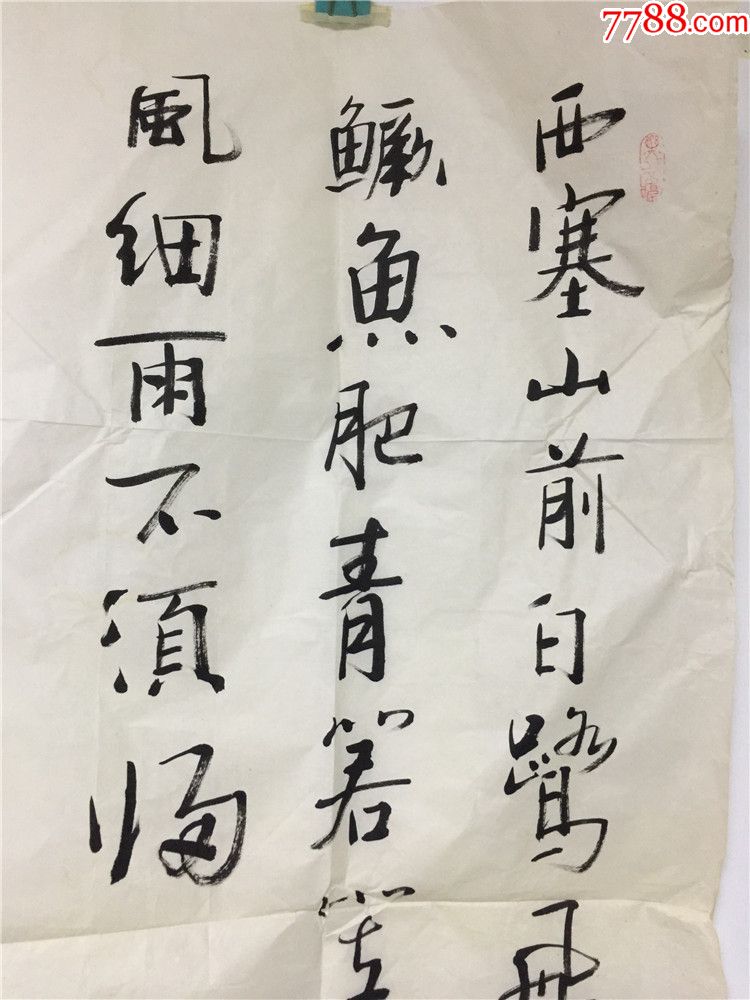 7788.com
西塞山前白鷺飛
鱖魚肥青箬笠
風細雨不須归